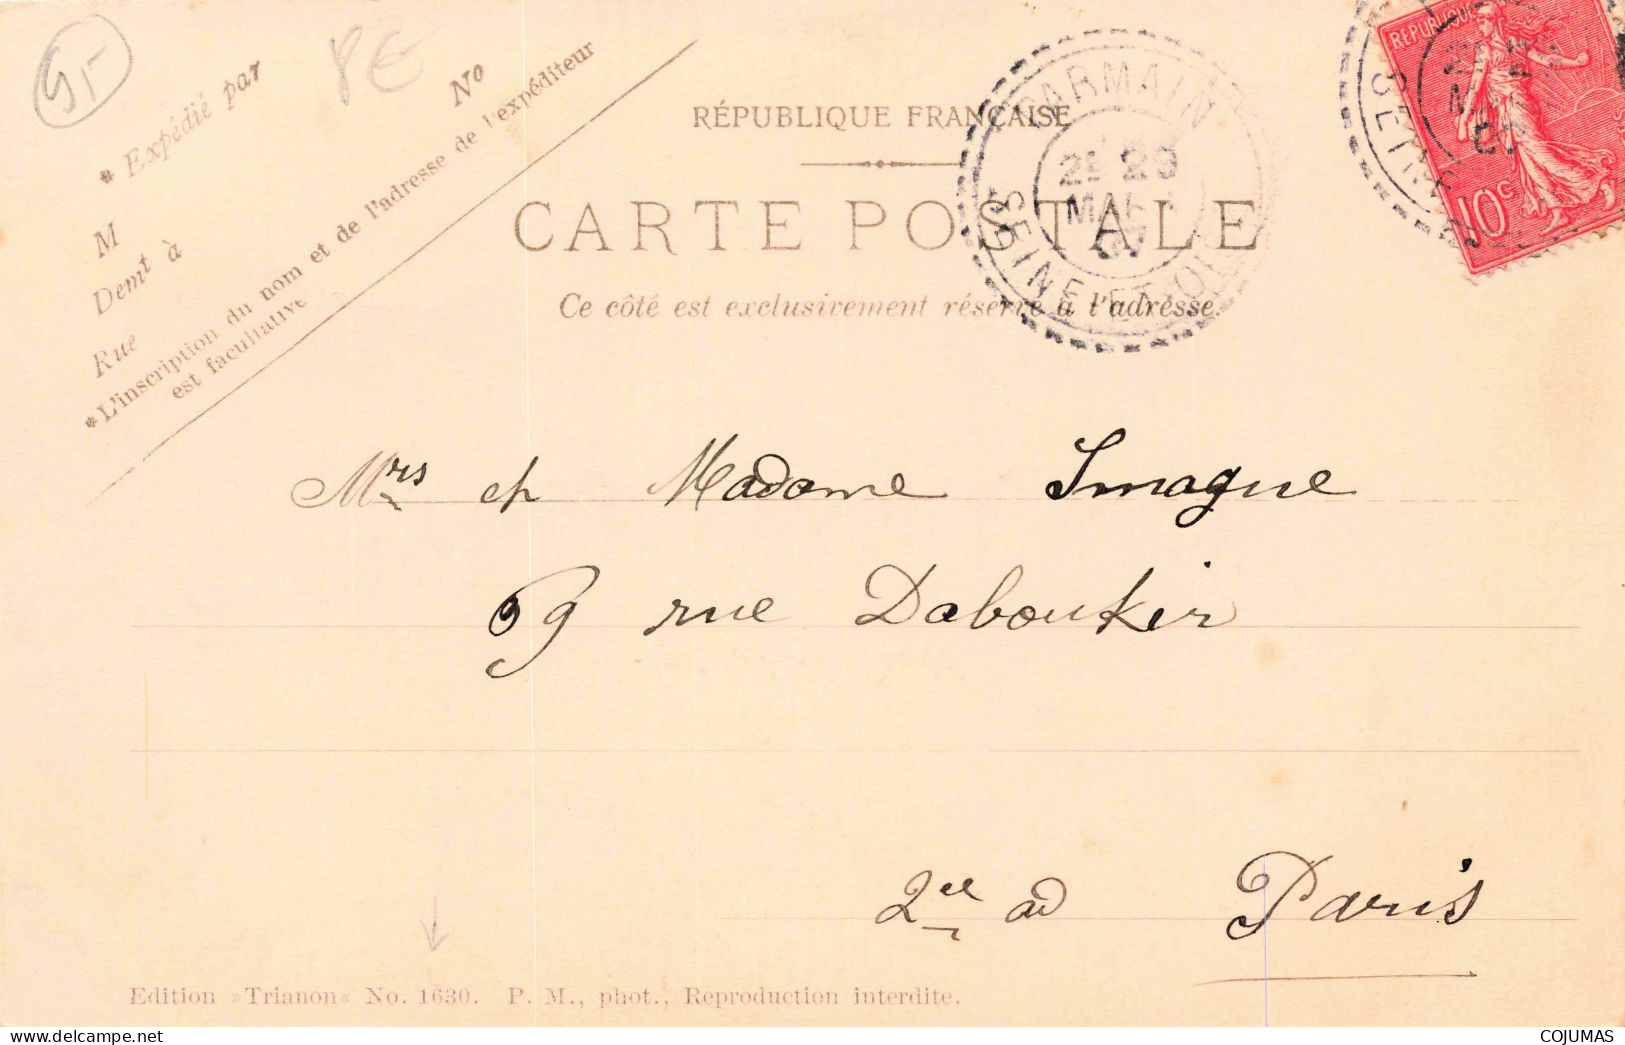 95
PE
* Expédié par
No
M
Demt à
Rue
*L'inscription du nom et de l'adresse de l'expéditeur
est facultative
RÉPUBLIQUE FRANÇAISE
CARTE POSTALE
Ce côté est exclusivement réservé à l'adresse.
PARMAIN
29
07
SEINE ET OISE
RÉPUBLIQUE
10c
SEINE
07
Mrs et Madame Imagne
69 rue Daboukir
2ee ad Paris
Edition »Trianon« No. 1630. P. M., phot., Reproduction interdite.
COJUMAS